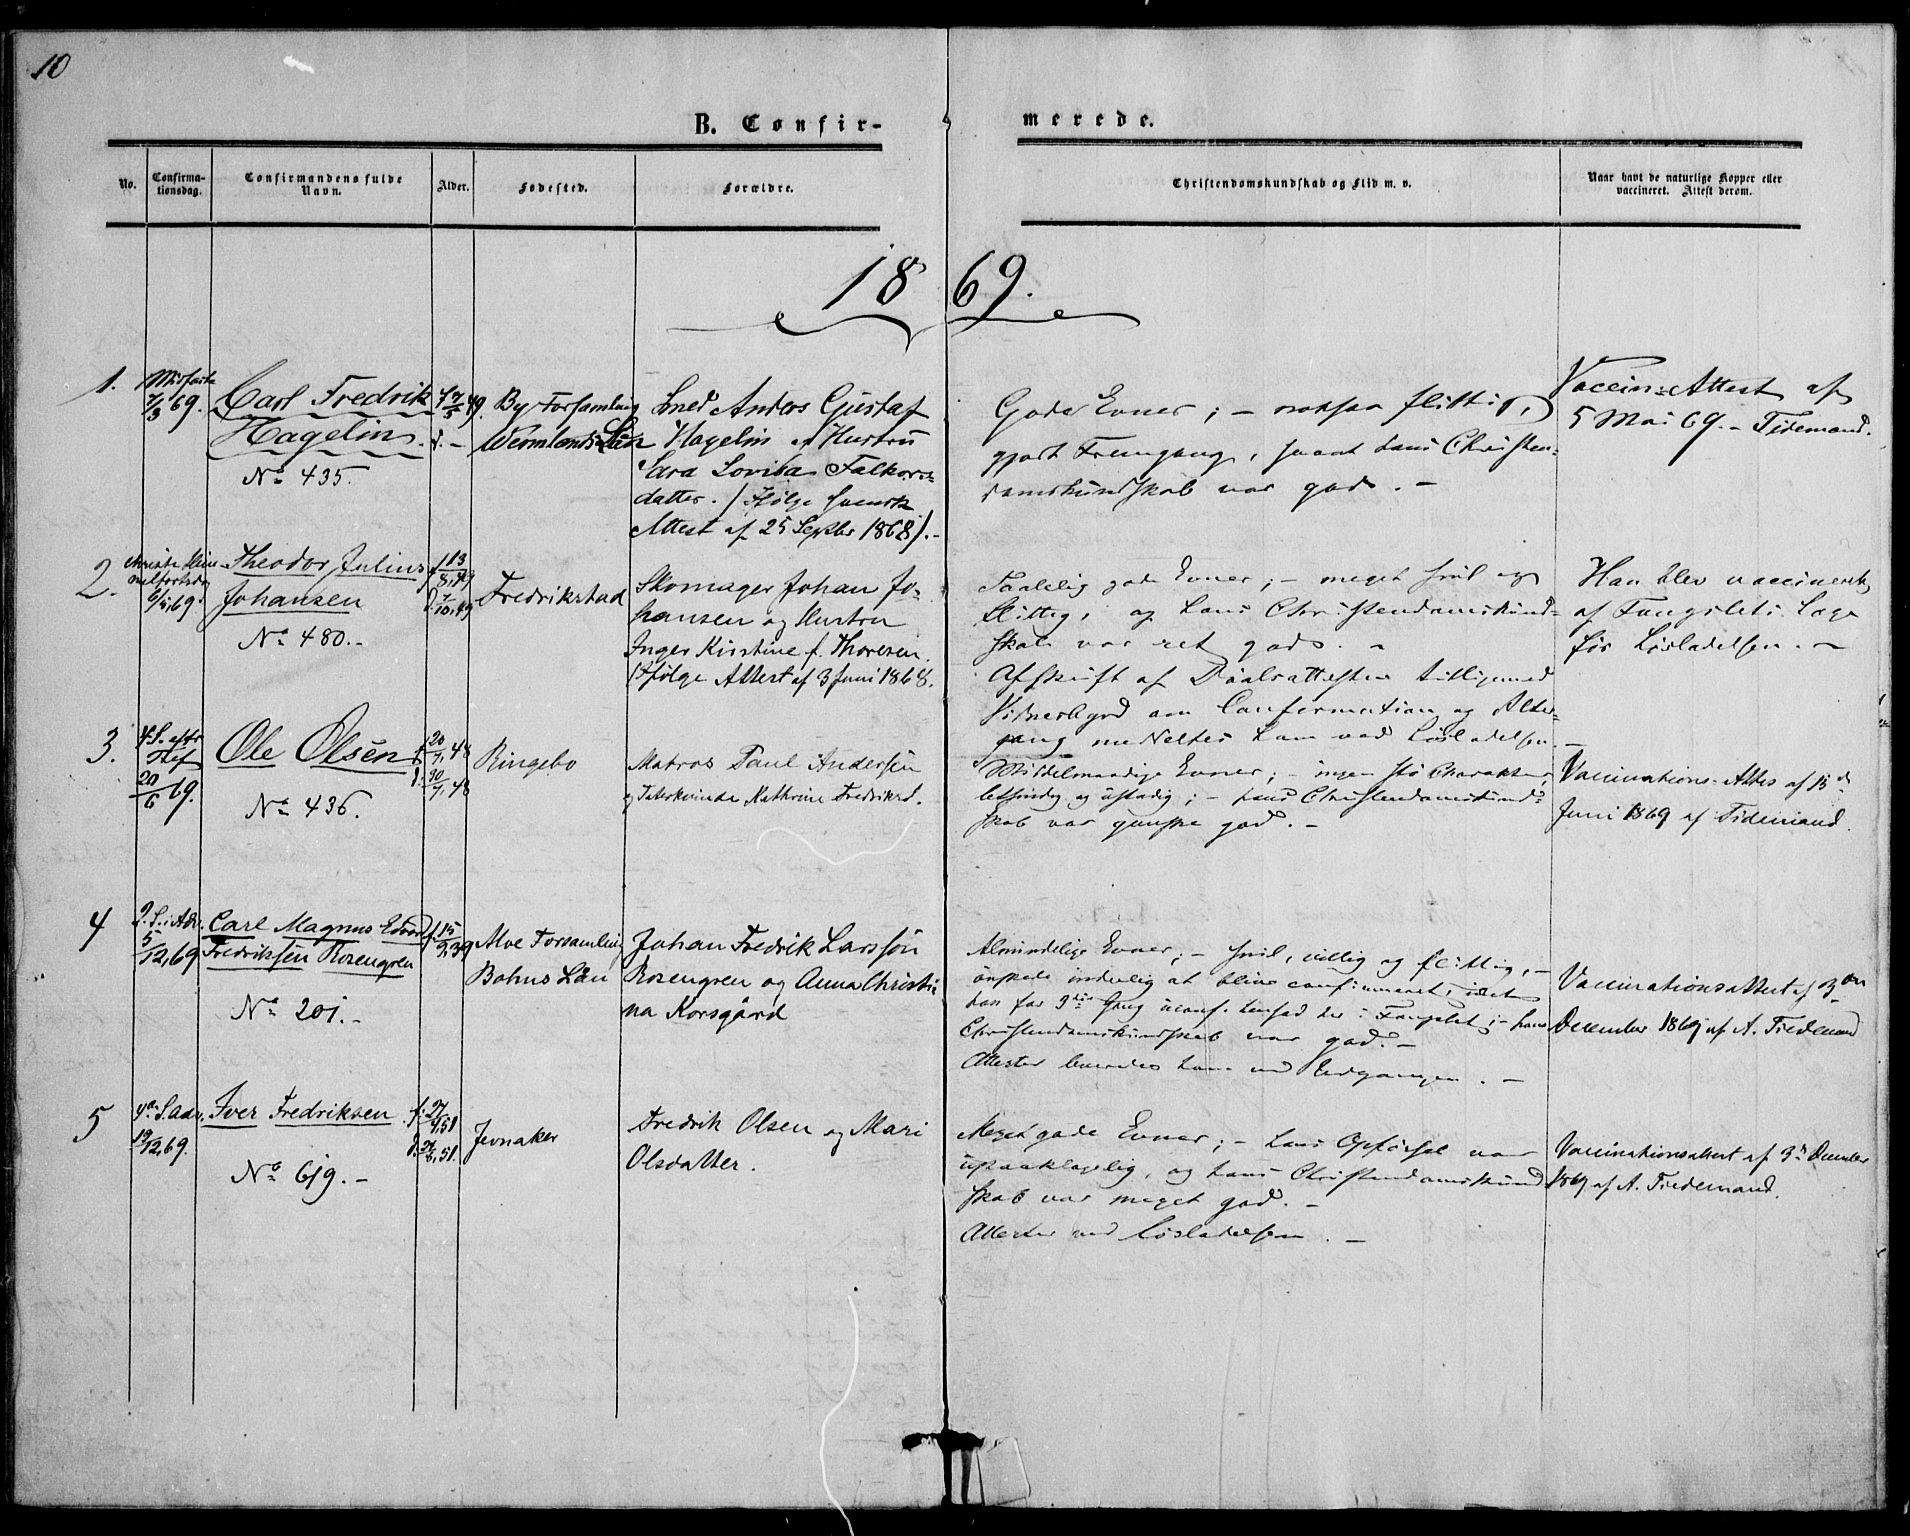 10
B. Confir-
merede.
No.
Confirma-
tionsdag.
Confirmandens fulde
Navn.
Alder.
Fødested.
Forældre.
Christendomskundskab og Flid m. v.
Naar havt de naturlige Kopper eller
vaccineret. Attest derom.
1869.
1.
Midfaste
7/3 69.
Carl Fredrik
Hagelin
No 435.
By Forsamling
Wermlands Län
Smed Anders Gustaf
Hagelin og Hustru
Sara Lovisa
datter. /Ifølge svensk
Attest af 25 Septbr 1868/.-
Gode Evner; - nokså flittig,
gjort Fremgang, saa at hans Christen-
domskundskab var god. -
Vaccin-Attest af
5 Mai 69. - Tidemand.
2.
Christi Him-
melfartsdag
6/5 69.
Theodor Julius
Johansen
No 480.-
f. 13/8, 49
d. 7/10, 49
Fredrikstad
Skomager Johan Jo-
hansen og Hustru
Inger Kirstine f. Thoresen.
/Ifølge Attest af 3 Juni 1868.
Taalelig gode Evner; - meget snil og
flittig, og hans Christendomskund-
skab var ret god. -
Afskrift af Daabsattesten tilligemed
Vidnesbyrd om Confirmation og Alter-
gang meddeltes ham ved Løsladelsen. -
Han blev vaccineret
af Fængslets Læge
før Løsladelsen. -
3.
4. S. efter
Tref.
20/6 69.
Ole Olsen
No 436.
f. 20/7, 48
d. 30/7, 48
Ringebo
Matros Paul Andersen
og Taterkvinde Kathrine Fredriksd.
Middelmaadige Evner; - ingen Charakter
letsindig og ustadig; - hans Christendomskund-
skab var ganske god. -
Vaccinations-Attes af 15de
Juni 1869 af Tidemand.
4
2. S. i Adv.
5/12, 69
Carl Magnus Edvard
Fredriksen Rosengren
No 201.-
f. 15/9, 39
Forsamling
Bohus Län
Johan Fredrik Larssøn
Rosengren og Anna Christi-
na Korsgård
Almindelige Evner; - snil, villig og flittig, -
ønskede inderlig at blive confirmeret, idet
han for 3die Gang uconf. hensad her i Fængslet; - hans
Christendomskundskab var god. -
Attester leveredes ham ved Udgangen. -
Vaccinationsattest af 3die
December 1869 af A. Tidemand
5
4de S. adv.
19/12, 69.
Iver Fredriksen
No 619. -
Jevnaker
Fredrik Olsen og Mari
Olsdatter.
Meget gode Evner; - hans Opførsel var
upaaklagelig, og hans Christendomskund-
skab var meget god. -
Attester ved Løsladelsen. -
Vaccinationsattest af 3de December
1869 af A. Tidemand.